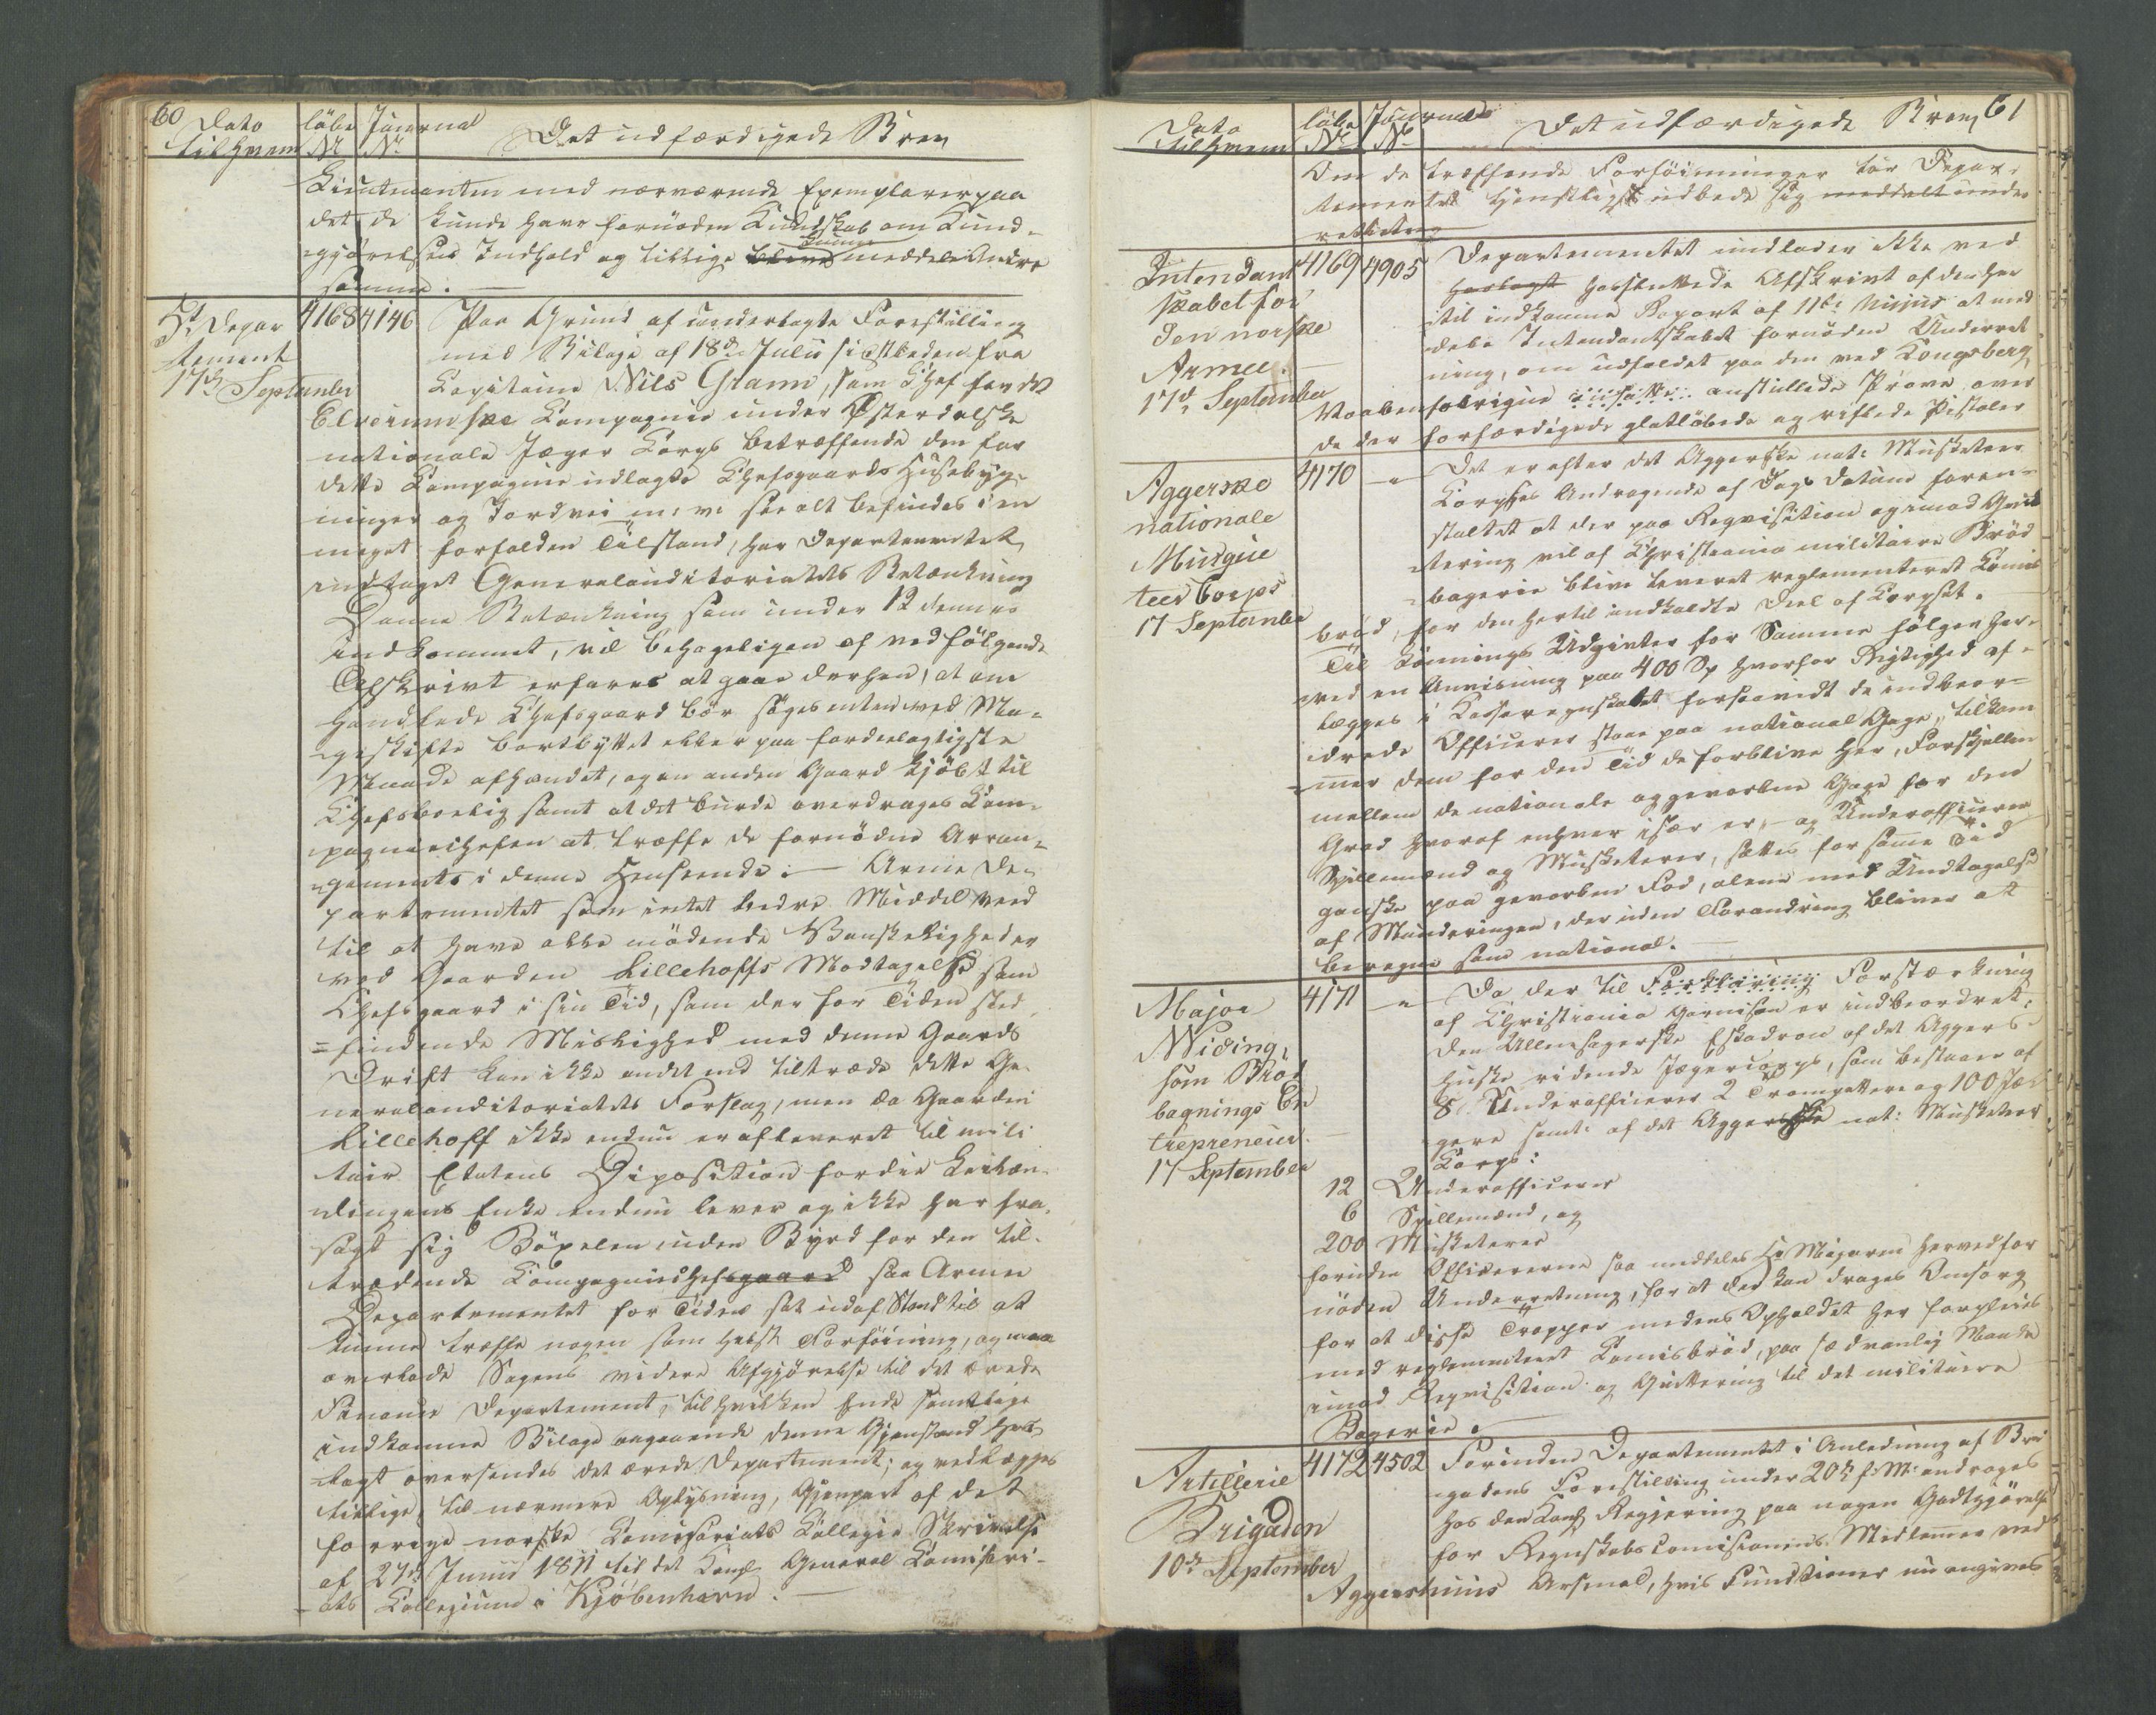 60
Dato
til hvem
löbe
No
Journal
No
Det udfærdigede Brev
Lieutenanten med nærværende Exemplarer paa
det de kunde have fornöden Kundskab om Kund-
gjörelsens Indhold og tillige kunne meddele Andre
samme.
5te Depar
tement
17de September
4168 4146
Paa Grund af underlagte Forestilling
med Bilage af 18de Julii sidstleden fra
Capitaine Nils Gramm, som Chef for det
Elverumske Compagnie under Østerdalske
nationale Jæger Corps betræffende den for
dette Compagnie udlagte Chefsgaards Husebyg-
ninger og Jordvei m: v: som alt befindes i en
meget forfalden Tilstand, har Departementet
indtaget Generalauditoriatets Betænkning
Denne Betænkning som under 12 dennes
indkommet, vil behageligen af vedfölgende
Afskrivt erfares at gaae derhen, at om
handlede Chefsgaard bör söges enten ved Ma-
geskifte bortbyttet eller paa fordeelagtigste
Maade afhændet, og en anden Gaard kjöbt til
Chefsbolig samt at det burde overdrages Com-
pagniechefen at træffe de fornödne Arran-
gements i denne Henseende: — Armee De-
partementet som intet bedre Middel veed
til at hæve alle mödende Vanskeligheder
ved Gaarden Lillehoffs Modtagelse som
Chefsgaard i sin Tid, som der for Tiden sted
findende Mislighed med denne Gaards
Drift kan ikke andet end tiltræde dette Ge-
neralauditoriatets Forslag, men da Gaarden
Lillehoff ikke endnu er afleveret til mili
tair Etatens Disposition fordie Leilæn-
dingens Enke endnu lever og ikke har fra-
sagt sig Böxelen uden Byrd for den til-
trædende Compagniechefsgaard saa Armee
Departementet for Tiden sat ud af Stand til at
kunne træffe nogen som helst Forföining, og maa
overlade Sagens videre Afgjörelse til det ærede
Finance Departement, til hvilken Ende samtlige
indkomne Bilage angaaende denne Gjenstand her-
lagt oversendes det ærede Departement; og vedlægges
tillige, til nærmere Oplysning, Gjenpart af det
forrige norske Comissariats Collegie Skrivelse
af 27de Junii 1811 til det Kongl General Comisari-
ats Collegium i Kjöbenhavn. —
Dato
til hvem
löbe
No
Journal
No
Det udfærdigede Brev
61
Om de træffende Forföininger tör Depar-
tementet tjenstligst udbede sig meddelt under
retning
Intendant
skabet for
den norske
Armee.
17de September
4169 4905
Departementet undlader ikke ved
hoslagt hosfölgende Afskrivt af den her
til indkomne Raport af 11te hujus at med
dele Intendantskabet fornöden Underret
ning, om udfaldet paa den ved Kongsberg
Vaabenfabrique ansatte anstillede Pröve over
de der forfærdigede glatlöbede og riflede Pistoler
Aggerske
nationale
Musque
teer Corps
17 September
4170 — "
Det er efter det Aggerske nat: Musketeer
Corpses Andragende af Dags Datum foran-
staltet at der paa Reqvisition og imod Qvit
tering vil af Christiania militaire Bröd
bagerie blive leveret reglementeret Comis
bröd, for den hertil indkaldte Deel af Corpset.
Til Lönnings Udgivter for Samme fölger her-
ved en Anvisning paa 400 Sp hvorfor Rigtighed af-
lægges i Casseregnskabet forsaavidt de indbeor-
drede Officierer staae paa national Gage, tilkom
mer dem for den Tid de forblive her, Forskjellen
mellem de nationale og gevorbne Gage for den
Grad hvoraf enhver især er, — og Underofficierer
Spillemænd og Musketerer, sættes for samme Tid
ganske paa gevorben Fod, alene med Undtagelse
af Munderingen, der uden Forandring bliver at
beregne som national. —
Major
Niding,
som Bröd
bagnings En
trepreneur.
17 September
4171 — "
Da der til Forklaring Forstærkning
af Christiania Garnison er indbeordret,
den Ullensagerske Eskadron af det Aggers-
huuske ridende Jægercorps, som bestaaer af
8 Underofficierer 2 Trompettere og 100 Jæ-
gere samt af det Aggerske nat: Musketeer
Corps:
12 Underofficierer
6 Spillemænd, og
200 Musketerer
foruden Officiererne saa meddeles Hr Majoren herved for
nöden Underretning, for at der kan drages Omsorg
for at disse Tropper medens Opholdet her forpleies
med reglementeret Comisbröd, paa sædvanlig Maade
imod Reqvisition og Qvittering til det militaire
Bagerie.
Artillerie
Brigaden
10de September
4172 4502
Forinden Departementet i Anledning af Bri
gadens Forestilling under 20de f: M: andrages
hos den Kongl Regjering paa nogen Godtgjörelse
for Regnskabs Comissionens Medlemmer ved
Aggershuus Arsenal, hvis Functioner nu angives